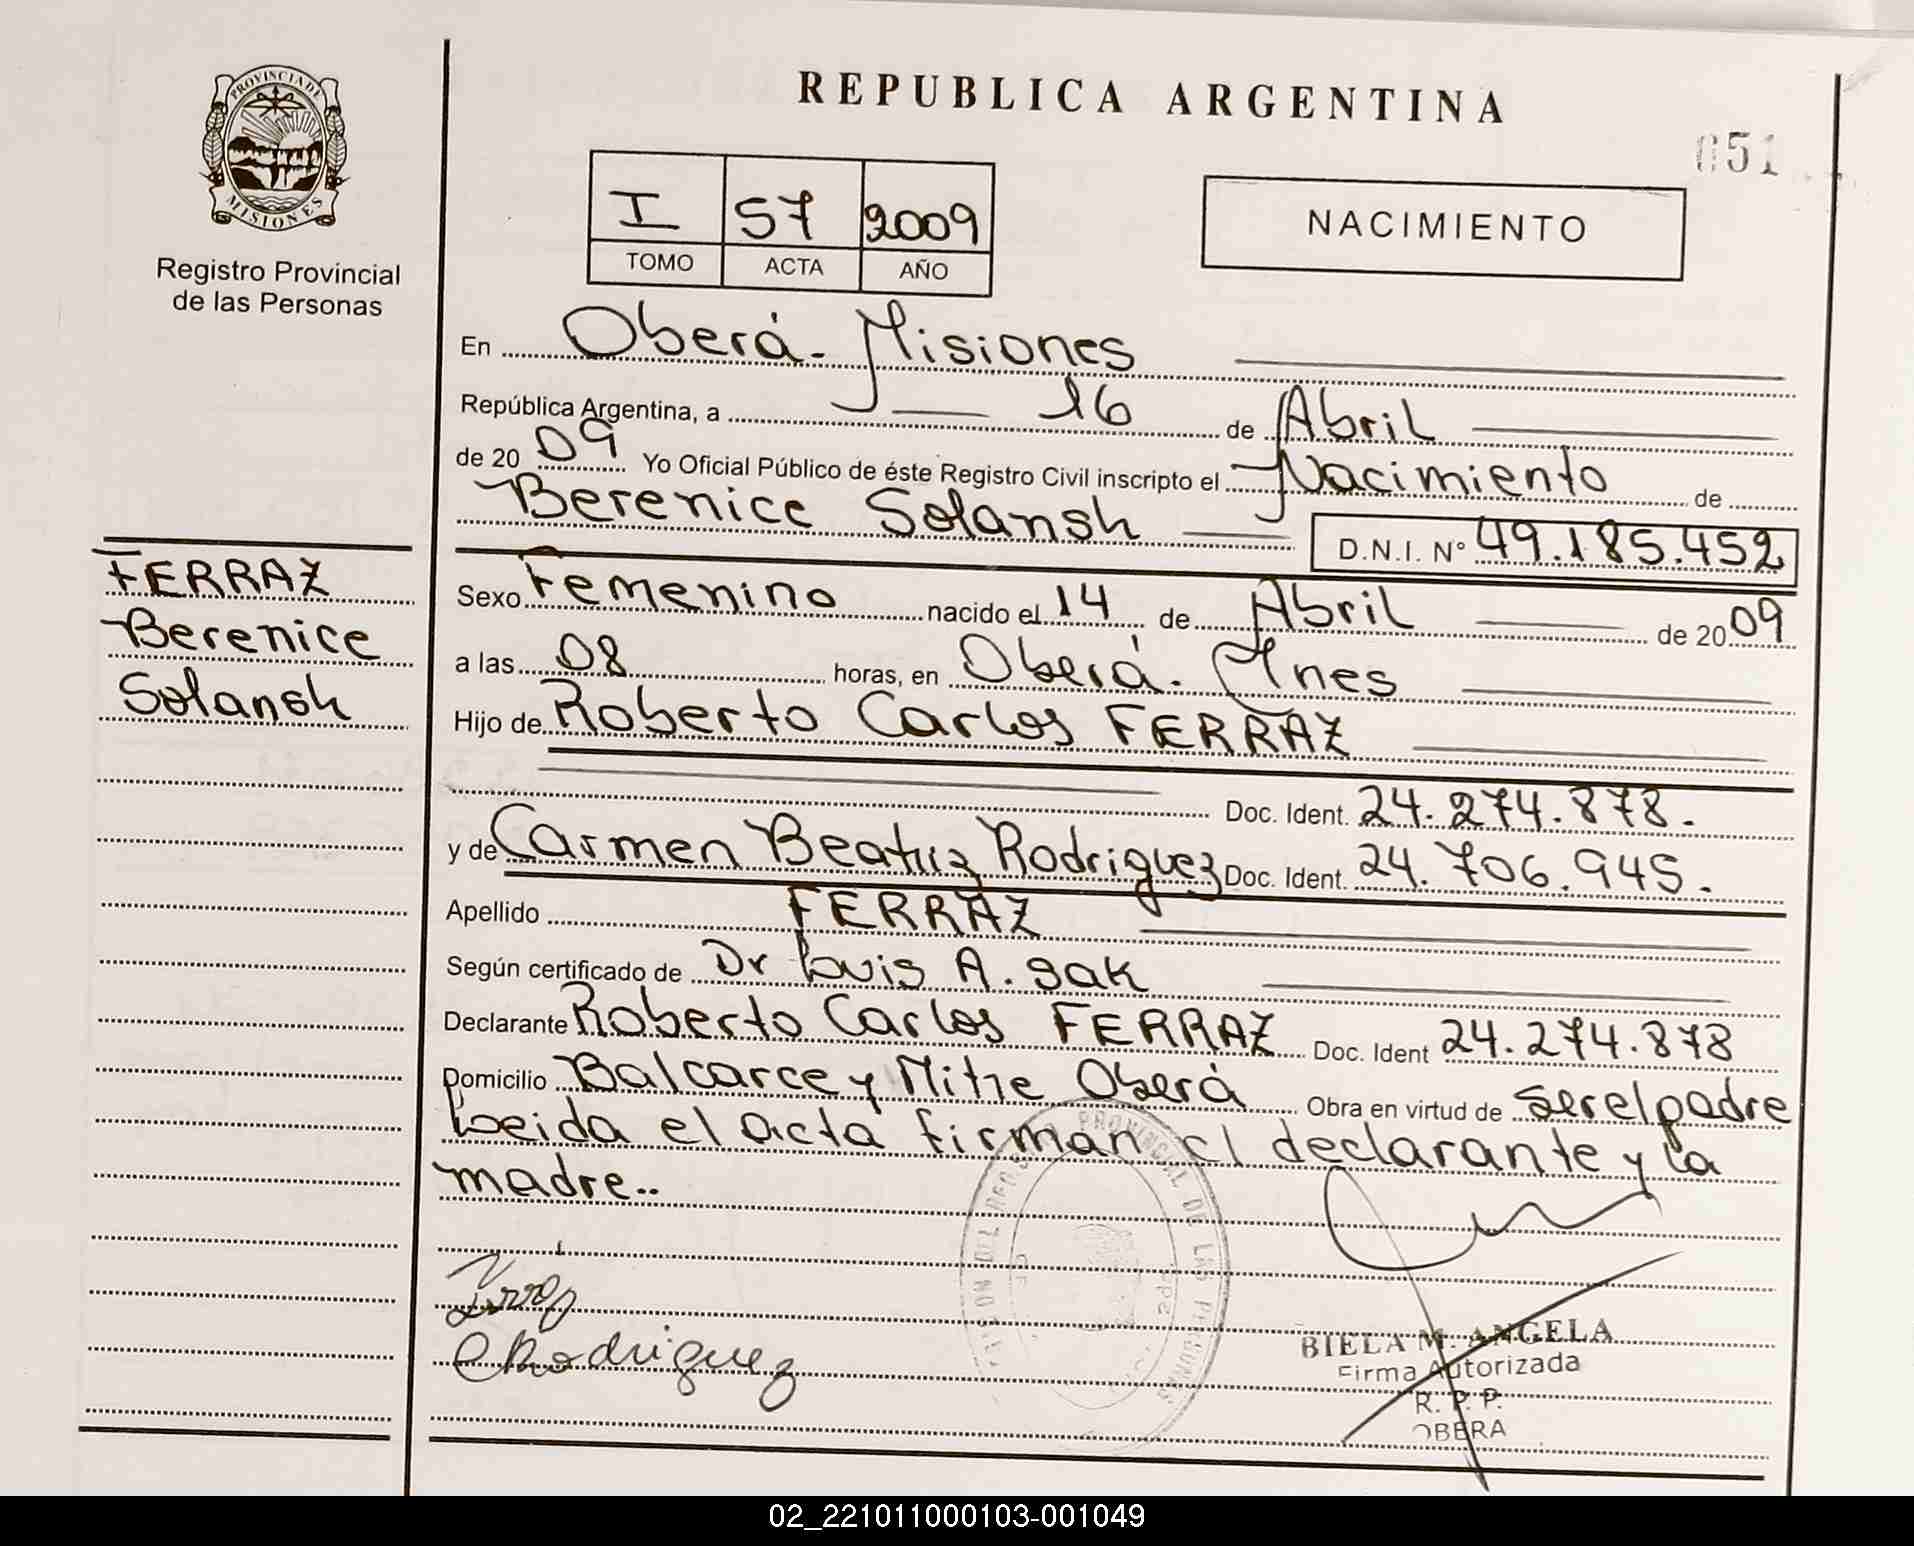 PROVINCIA DE
MISIONES
Registro Provincial
de las Personas
REPUBLICA ARGENTINA
051
I 57 2009
TOMO ACTA AÑO
NACIMIENTO
En Oberá - Misiones
República Argentina, a 16 de Abril
de 20 09 Yo Oficial Público de éste Registro Civil inscripto el Nacimiento de
Berenice Solansh D.N.I. Nº 49.185.452
FERRAZ
Berenice
Solansh
Sexo Femenino nacido el 14 de Abril de 20 09
a las 08 horas, en Oberá. Mnes
Hijo de Roberto Carlos FERRAZ
Doc. Ident. 24.274.878.
y de Carmen Beatriz Rodriguez Doc. Ident. 24.706.945.
Apellido FERRAZ
Según certificado de Dr Luis A. Sak
Declarante Roberto Carlos FERRAZ Doc. Ident 24.274.878
Domicilio Balcarce y Mitre Oberá Obra en virtud de ser el padre
Leida el acta firman el declarante y la
madre..
PROVINCIAL DE LAS PERSONAS
CRodriguez
BIELA M. ANGELA
Firma Autorizada
R. P. P.
OBERA
02_221011000103-001049